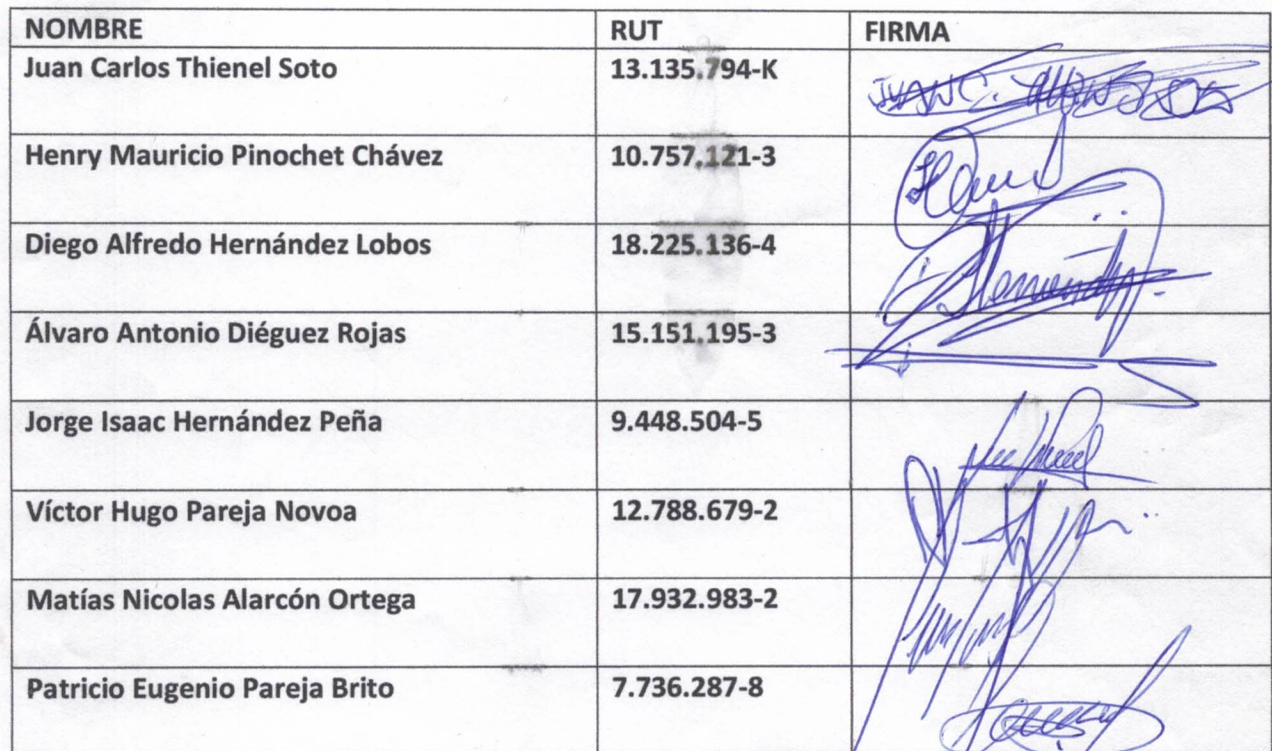 NOMBRE RUT FIRMA
Juan Carlos Thienel Soto 13.135.794-K JUAN C.
Henry Mauricio Pinochet Chávez 10.757.121-3
Diego Alfredo Hernández Lobos 18.225.136-4
Álvaro Antonio Diéguez Rojas 15.151.195-3
Jorge Isaac Hernández Peña 9.448.504-5
Víctor Hugo Pareja Novoa 12.788.679-2
Matías Nicolas Alarcón Ortega 17.932.983-2
Patricio Eugenio Pareja Brito 7.736.287-8